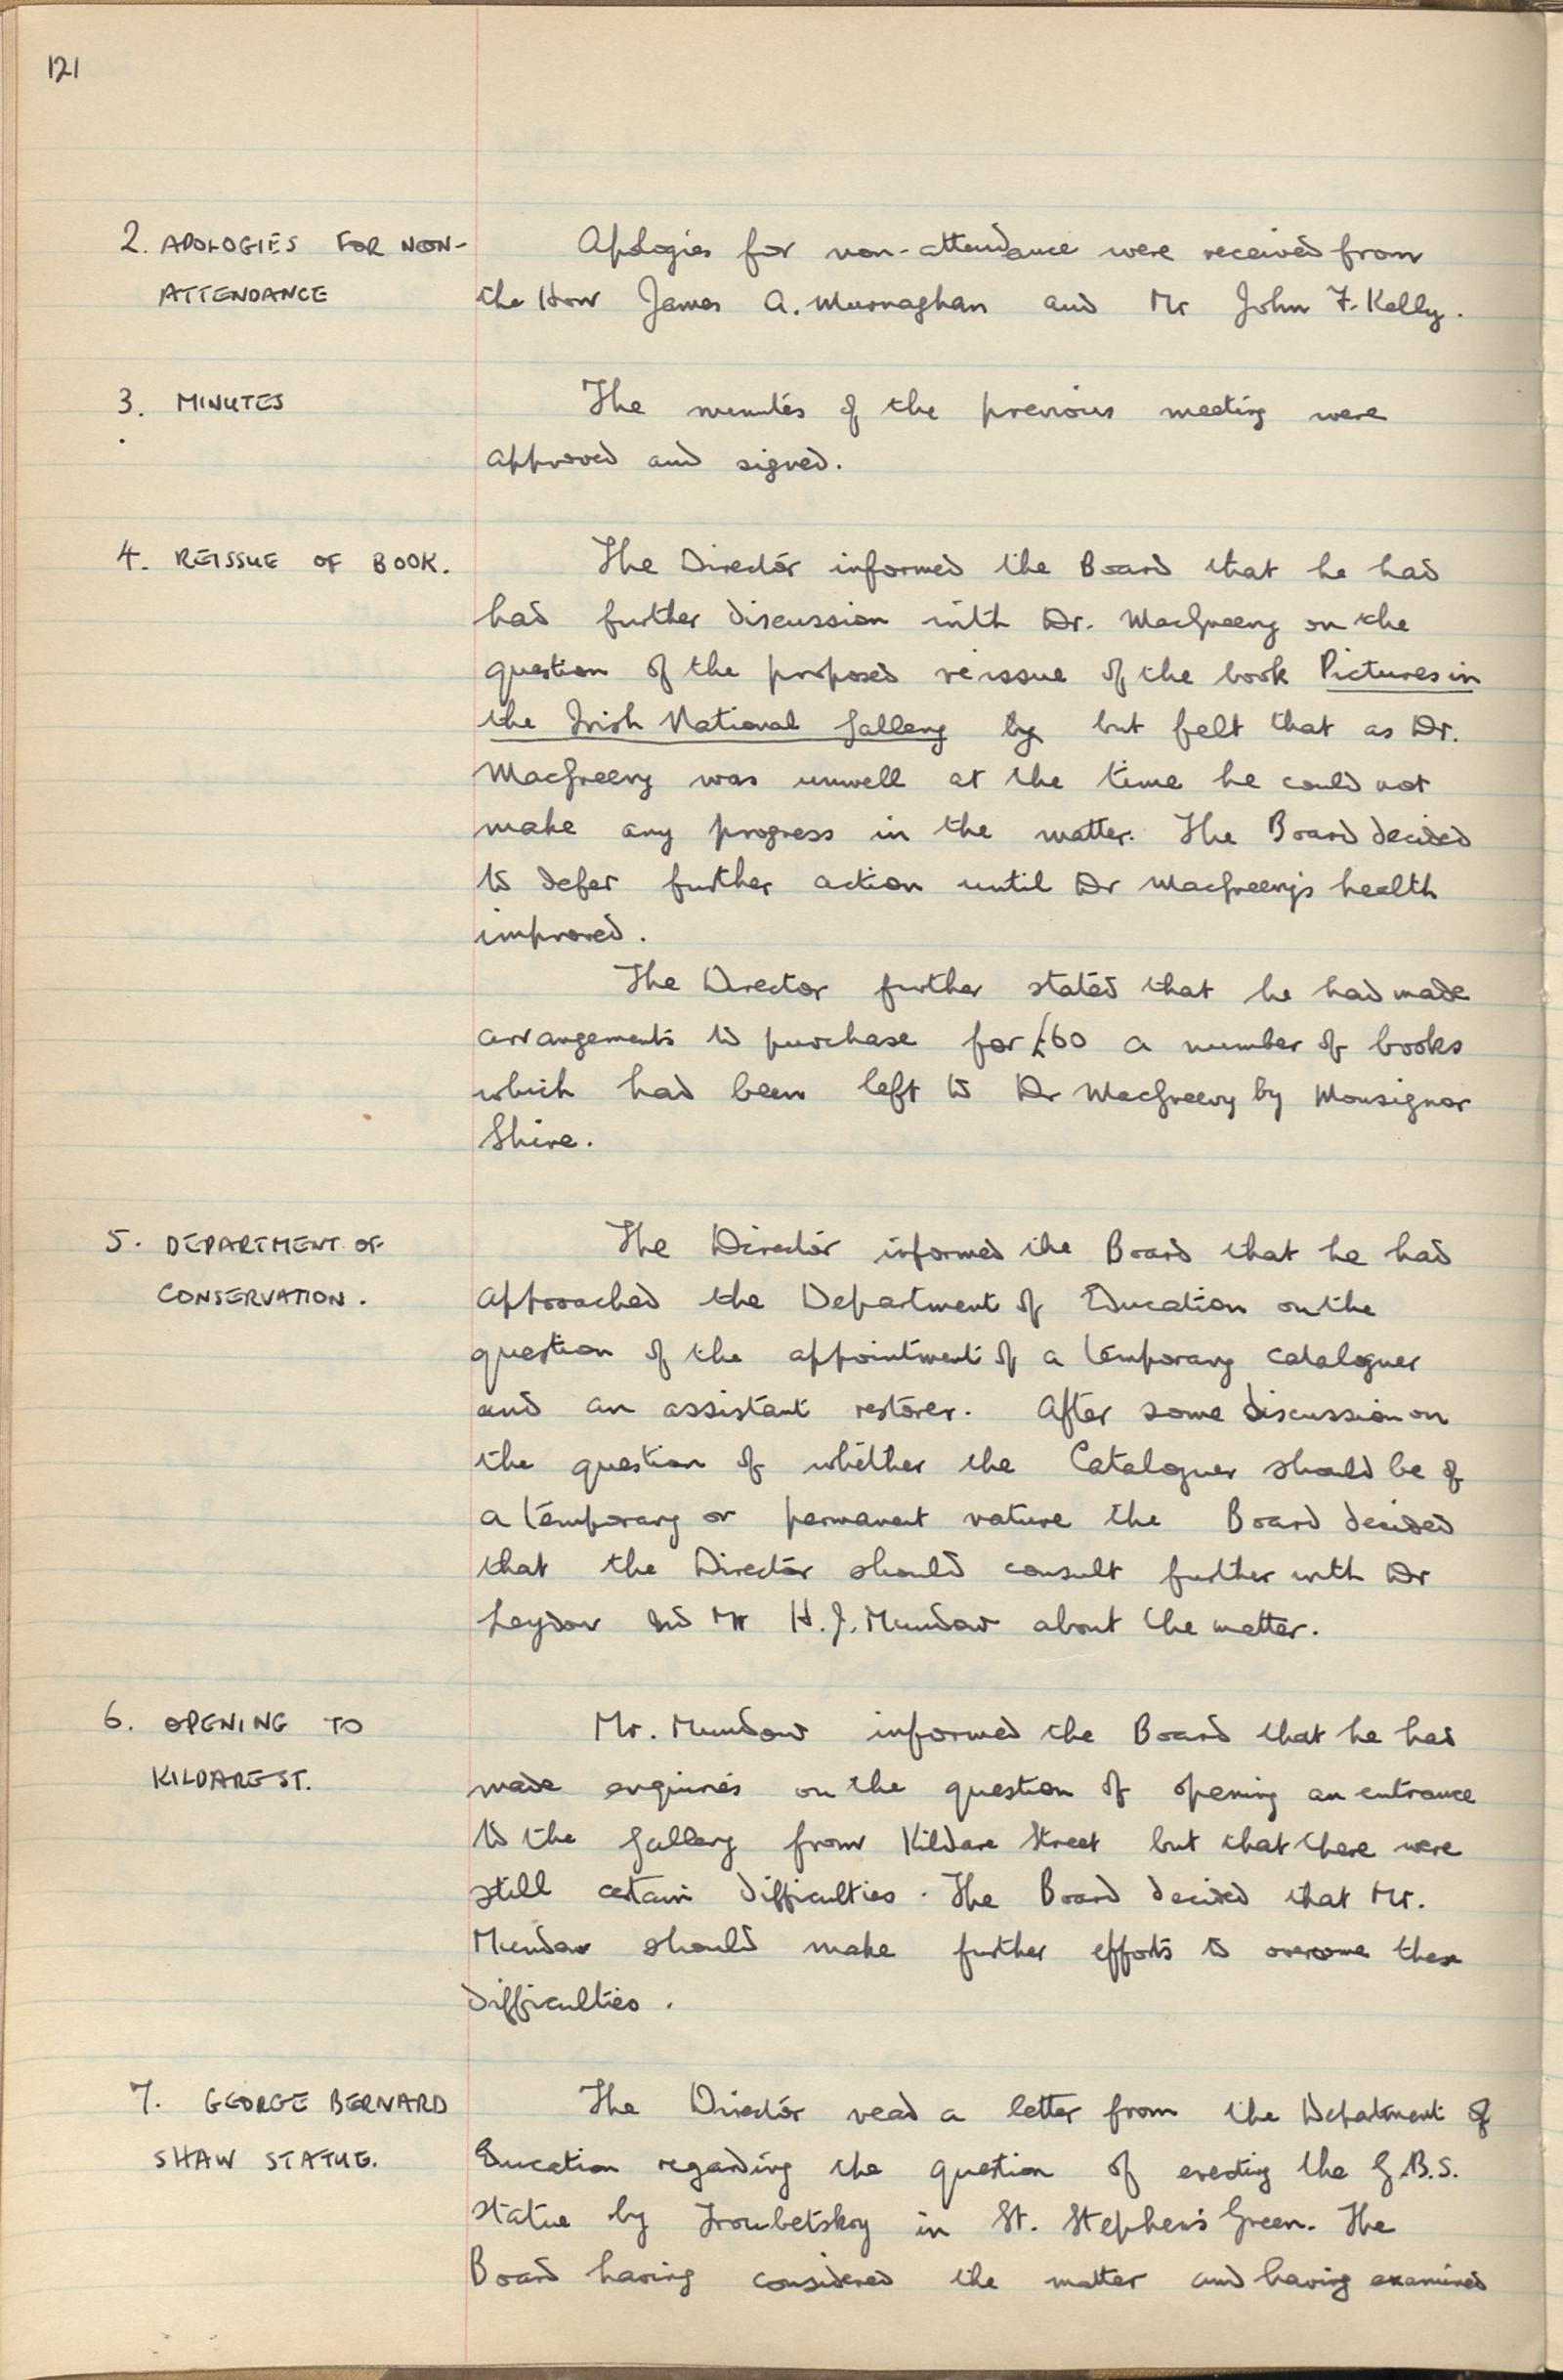 121
2. APOLOGIES FOR NON-
ATTENDANCE
Apologies for non-attendance were received from
the Hon James A. Murnaghan and Mr John F. Kelly.
3. MINUTES
The minutes of the previous meeting were
approved and signed.
4. REISSUE OF BOOK.
The Director informed the Board that he had
had further discussion with Dr. MacGreevy on the
question of the proposed reissue of the book Pictures in
the Irish National Gallery by but felt that as Dr.
MacGreevy was unwell at the time he could not
make any progress in the matter. The Board decided
to defer further action until Dr MacGreevy's health
improved.
The Director further stated that he had made
arrangements to purchase for £60 a number of books
which had been left to Dr MacGreevy by Monsignor
Shine.
5. DEPARTMENT OF
CONSERVATION.
The Director informed the Board that he had
approached the Department of Education on the
question of the appointment of a temporary cataloguer
and an assistant restorer. After some discussion on
the question of whether the Cataloguer should be of
a temporary or permanent nature the Board decided
that the Director should consult further with Dr
Leydon and Mr H.J. Mundow about the matter.
6. OPENING TO
KILDARE ST.
Mr. Mundow informed the Board that he had
made enquiries on the question of opening an entrance
to the Gallery from Kildare Street but that there were
still certain difficulties. The Board decided that Mr.
Mundow should make further efforts to overcome these
difficulties.
7. GEORGE BERNARD
SHAW STATUE.
The Director read a letter from the Department of
Education regarding the question of erecting the G.B.S.
statue by Troubetskoy in St. Stephen's Green. The
Board having considered the matter and having examined